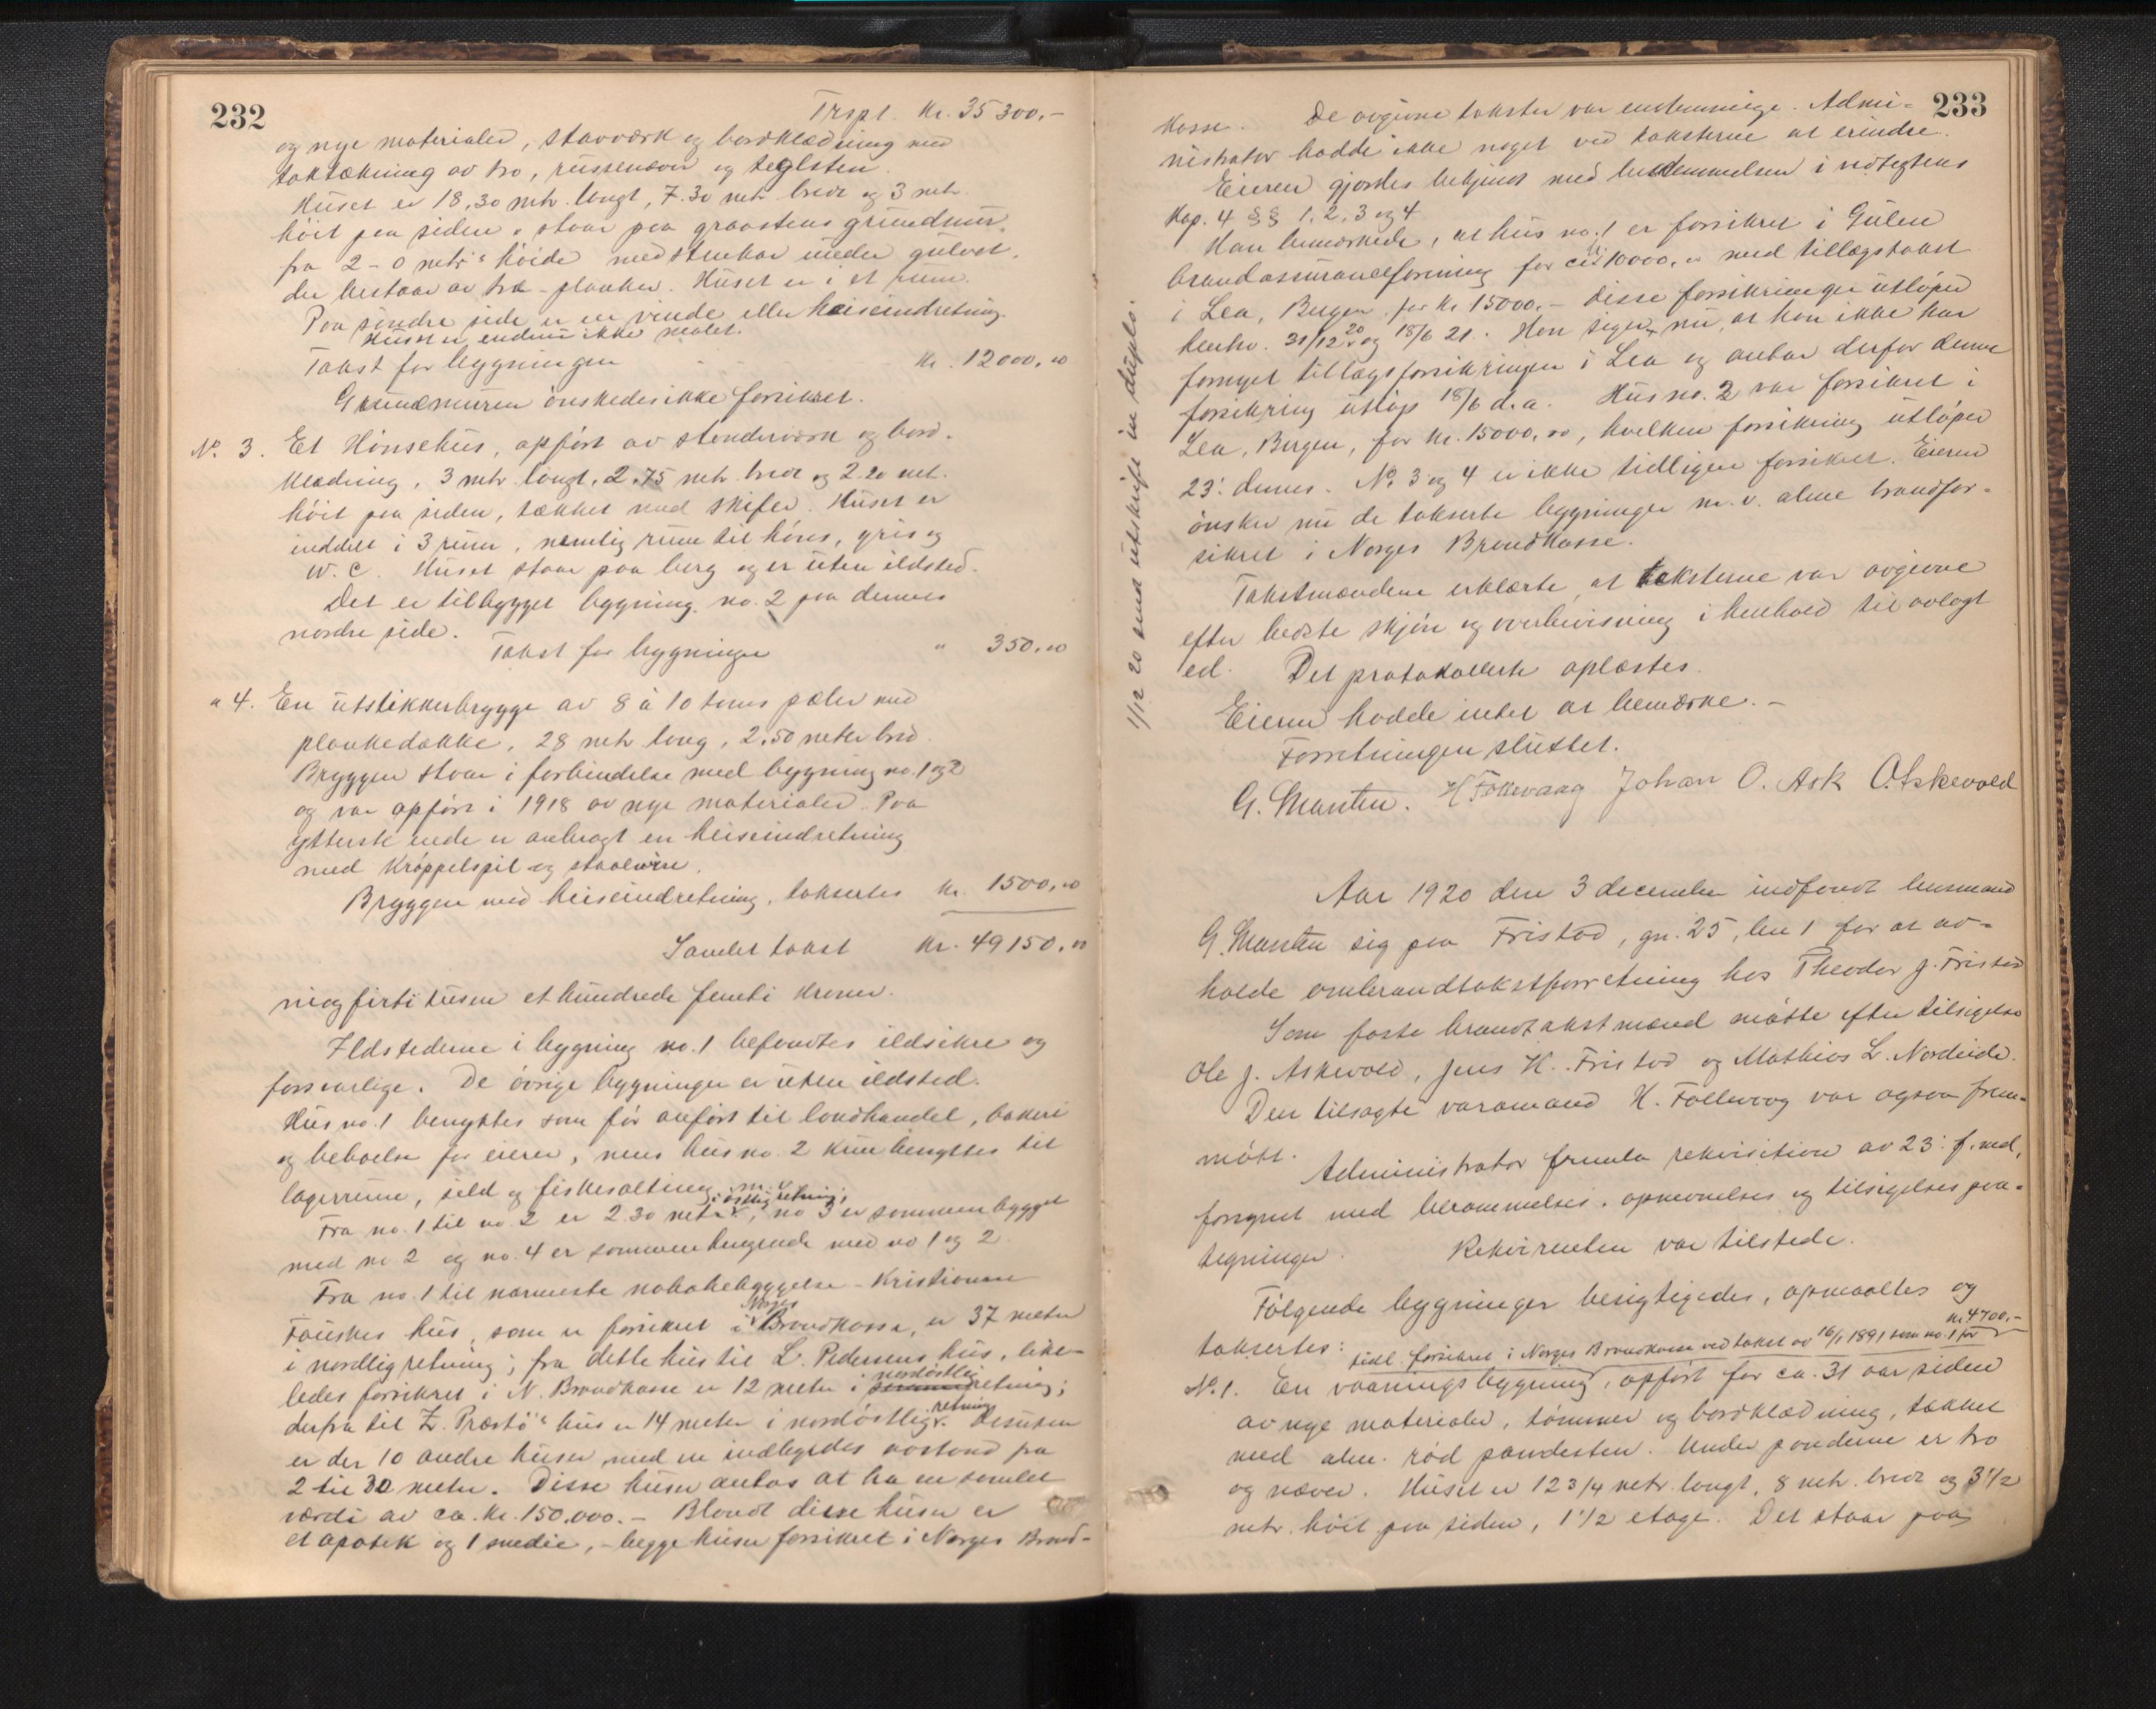 232
Trspt. Kr. 35300,-
og nye materialer, stavværk og bordklædning med
taktækning av tro, russenæver og teglsten.
Huset er 18,30 mtr. langt, 7.30 mtr bredt og 3 mtr.
høit paa siden, staar paa graastens grundmur
fra 2-0 mtrs høide med stenkar under gulvet,
der bestaar av træ-planker. Huset er i et rum.
Paa søndre side er en vinde eller heiseindretning.
Huset er endnu ikke malet.
Takst for bygningen Kr. 12000,00
Grundmuren ønskedes ikke forsikret.
No. 3. Et Hønsehus, opført av stenderværk og bord-
klædning, 3 mtr. langt, 2.75 mtr. bredt og 2.20 mtr.
høit paa siden, tækket med skifer. Huset er
inddelt i 3 rum, nemlig rum til høns, gris og
W.C. Huset staar paa berg og er uten ildsted.
Det er tilbygget bygning no. 2 paa dennes
nordre side.
Takst for bygningen " 350,00
" 4. En utstikkerbrygge av 8 à 10 toms pæler med
plankedække, 28 mtr lang, 2,50 meter bred.
Bryggen staar i forbindelse med bygning no. 1 og 2
og var opført i 1918 av nye materialer. Paa
ytterste ende er anbragt en heiseindretning
med Krøppelspil og staalwire.
Bryggen med heiseindretning, taksertes Kr. 1500,00
Samlet takst Kr. 49150,00
niogfirti tusen et hundrede femti Kroner.
Ildstederne i bygning no. 1 befandtes ildsikre og
forsvarlige. De øvrige bygninger er uten ildsted.
Hus no. 1 benyttes som før anført til landhandel, bakeri
og beboelse for eieren, mens hus no. 2 kun benyttes til
lagerrum, sild og fiskesaltning m. v.
i østlig retning;
Fra no. 1 til no. 2 er 2.30 mtr., no 3 er sammenbygget
med no 2 og no. 4 er sammenhengende med no 1 og 2.
Fra no. 1 til nærmeste nabobebyggelse - Kristianne
Norges
Fauskes hus, som er forsikret i Brandkasse, er 37 meter
i nordlig retning; fra dette hus til L. Pedersens hus, like-
nordøstlig
ledes forsikret i N. Brandkasse er 12 meter i retning;
retning
derfra til Z. Præstø's hus er 14 meter i nordøstlig. Desuten
er der 10 andre huser, med en indbyrdes avstand fra
2 til 30 meter. Disse huser antas at ha en samlet
værdi av ca. Kr. 150.000.- Blandt disse huser er
et apotek og 1 smedie, - begge huser forsikret i Norges Brand-
233
Kasse. De avgivne takster var enstemmige. Admi-
nistrator hadde ikke noget ved taksterne at erindre.
Eieren gjordes bekjendt med bestemmelsen i vedtegtens
Kap. 4 §§ 1, 2, 3 og 4
Han bemerkede, at hus no. 1 er forsikret i Gulen
brandassuranceforening for Kr. 10000,00 med tillægstakst
i Lea, Bergen for Kr 15000,- Disse forsikringer utløper
henhv. 31/12 20 og 18/6 21. Han siger nu, at han ikke har
fornyet tillægsforsikringen i Lea og antar derfor denne
forsikring utløp 18/6 d.a. Hus no. 2 var forsikret i
Lea, Bergen, for Kr. 15000,00, hvilken forsikring utløper
23: dennes. No 3 og 4 er ikke tidligere forsikret. Eieren
ønsker nu de takserte bygninger m. v. alene brandfor-
sikret i Norges Brandkasse.
Takstmændene erklærte, at taksterne var avgivne
efter bedste skjøn og overbevisning i henhold til avlagt
ed. Det protokollerte oplæstes.
Eieren hadde intet at bemærke.-
Forretningen sluttet.
G. Smarten. H Follevaag Johan O. Ask O. Askevold
1/12 20 send utskrift in duplo.
Aar 1920 den 3 december indfandt lensmand
G. Smarten sig paa Fristad, gn. 25, bn 1 for at av-
holde ombrandtakstforretning hos Theodor J. Fristad
Som faste brandtakstmænd møtte efter tilsigelse
Ole J. Askevold, Jens H. Fristad og Mathias L. Nordeide.
Den tilsagte varamand H. Follevaag var ogsaa frem-
møtt.
Administrator fremla rekvisition av 23: f. md,
forsynet med berammelses, opnevnelses og tilsigelses paa-
tegninger. Rekvirenten var tilstede.
Følgende bygninger besigtigedes, opmaaltes og
taksertes:
Kr 4700,-
tidl. forsikret i Norges Brandkasse ved takst av 16/1 1891 som no. 1 for
No. 1. En vaaningsbygning, opført for ca. 31 aar siden
av nye materialer, tømmer og bordklædning, tækket
med alm. rød pandesten. Under panderne er tro
og næver. Huset er 12 3/4 mtr. langt, 8 mtr. bredt og 3 1/2
mtr. høit paa siden, 1 1/2 etage. Det staar paa